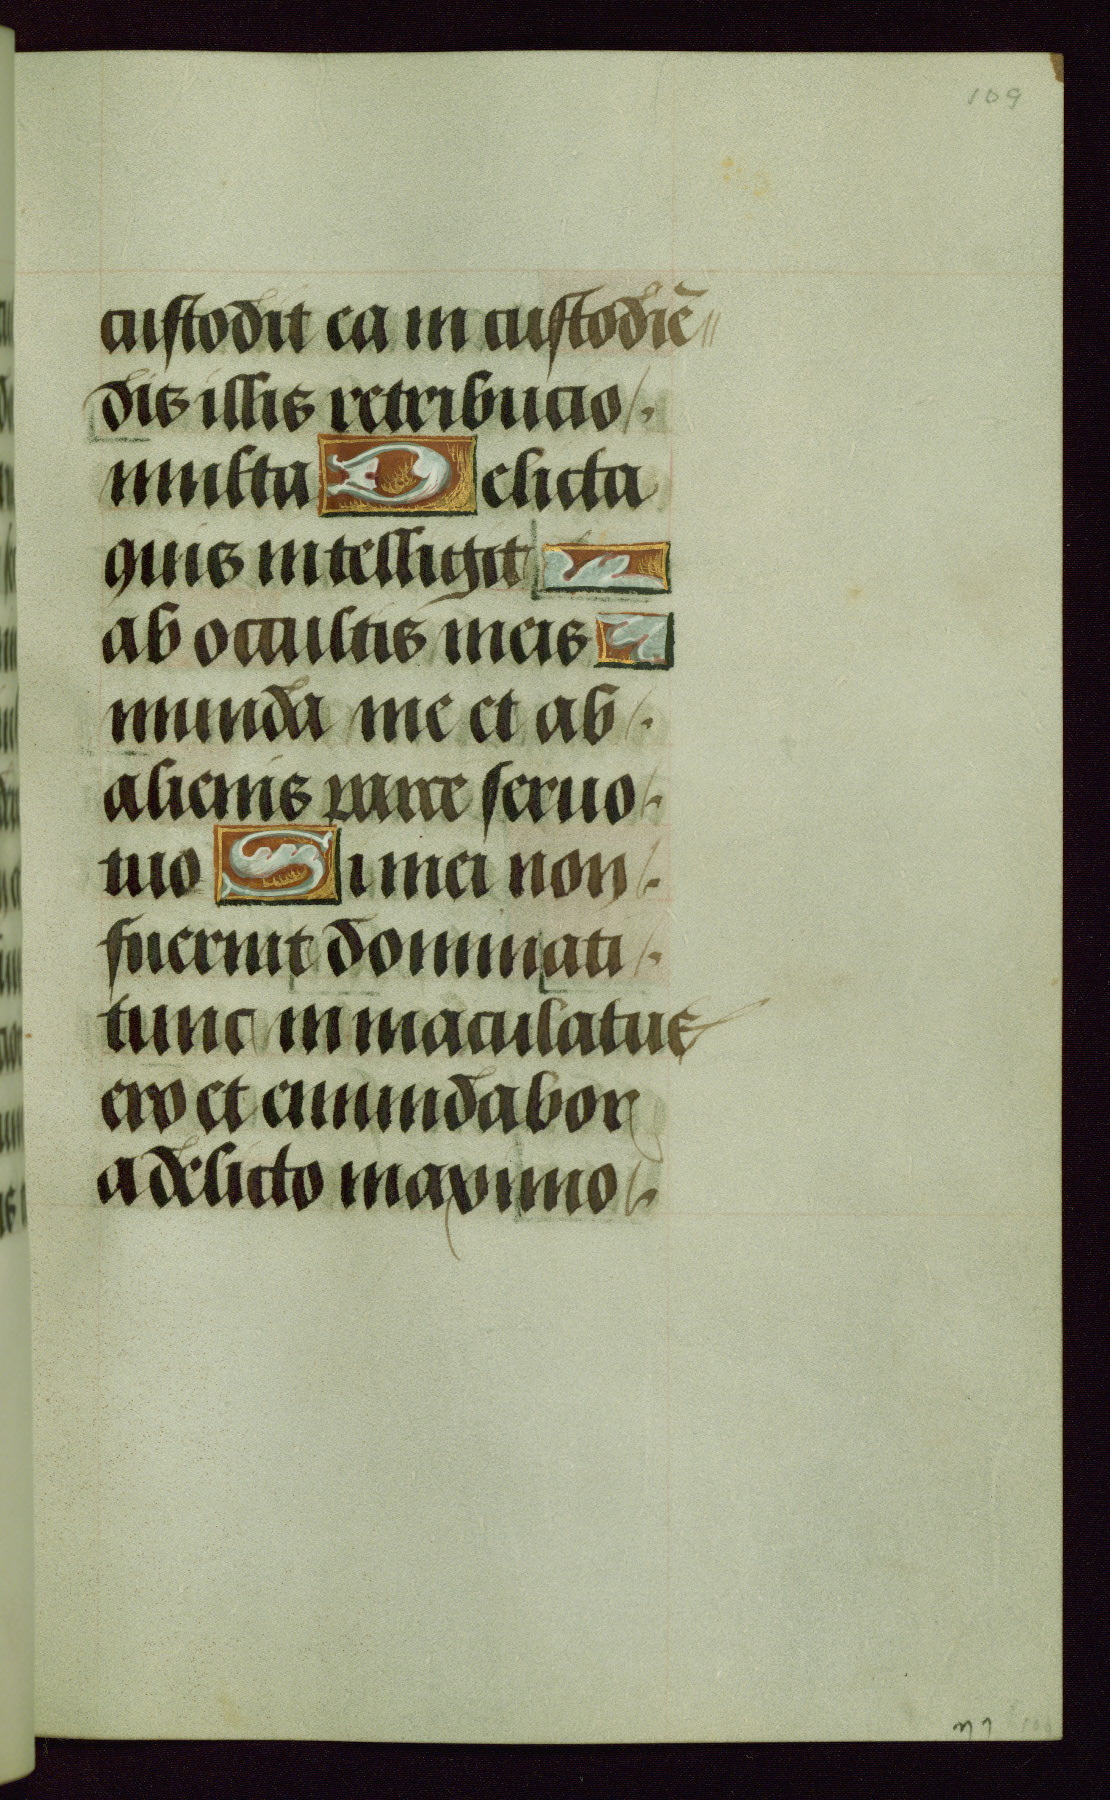 109
custodit ea in custodiē
dis illis retribucio
multa Delicta
quis intelligit
ab occultis meis
munda me et ab
alienis parce seruo
tuo Si mei non
fuerint dominati
tunc inmaculatus
ero et emundabor
a delicto maximo